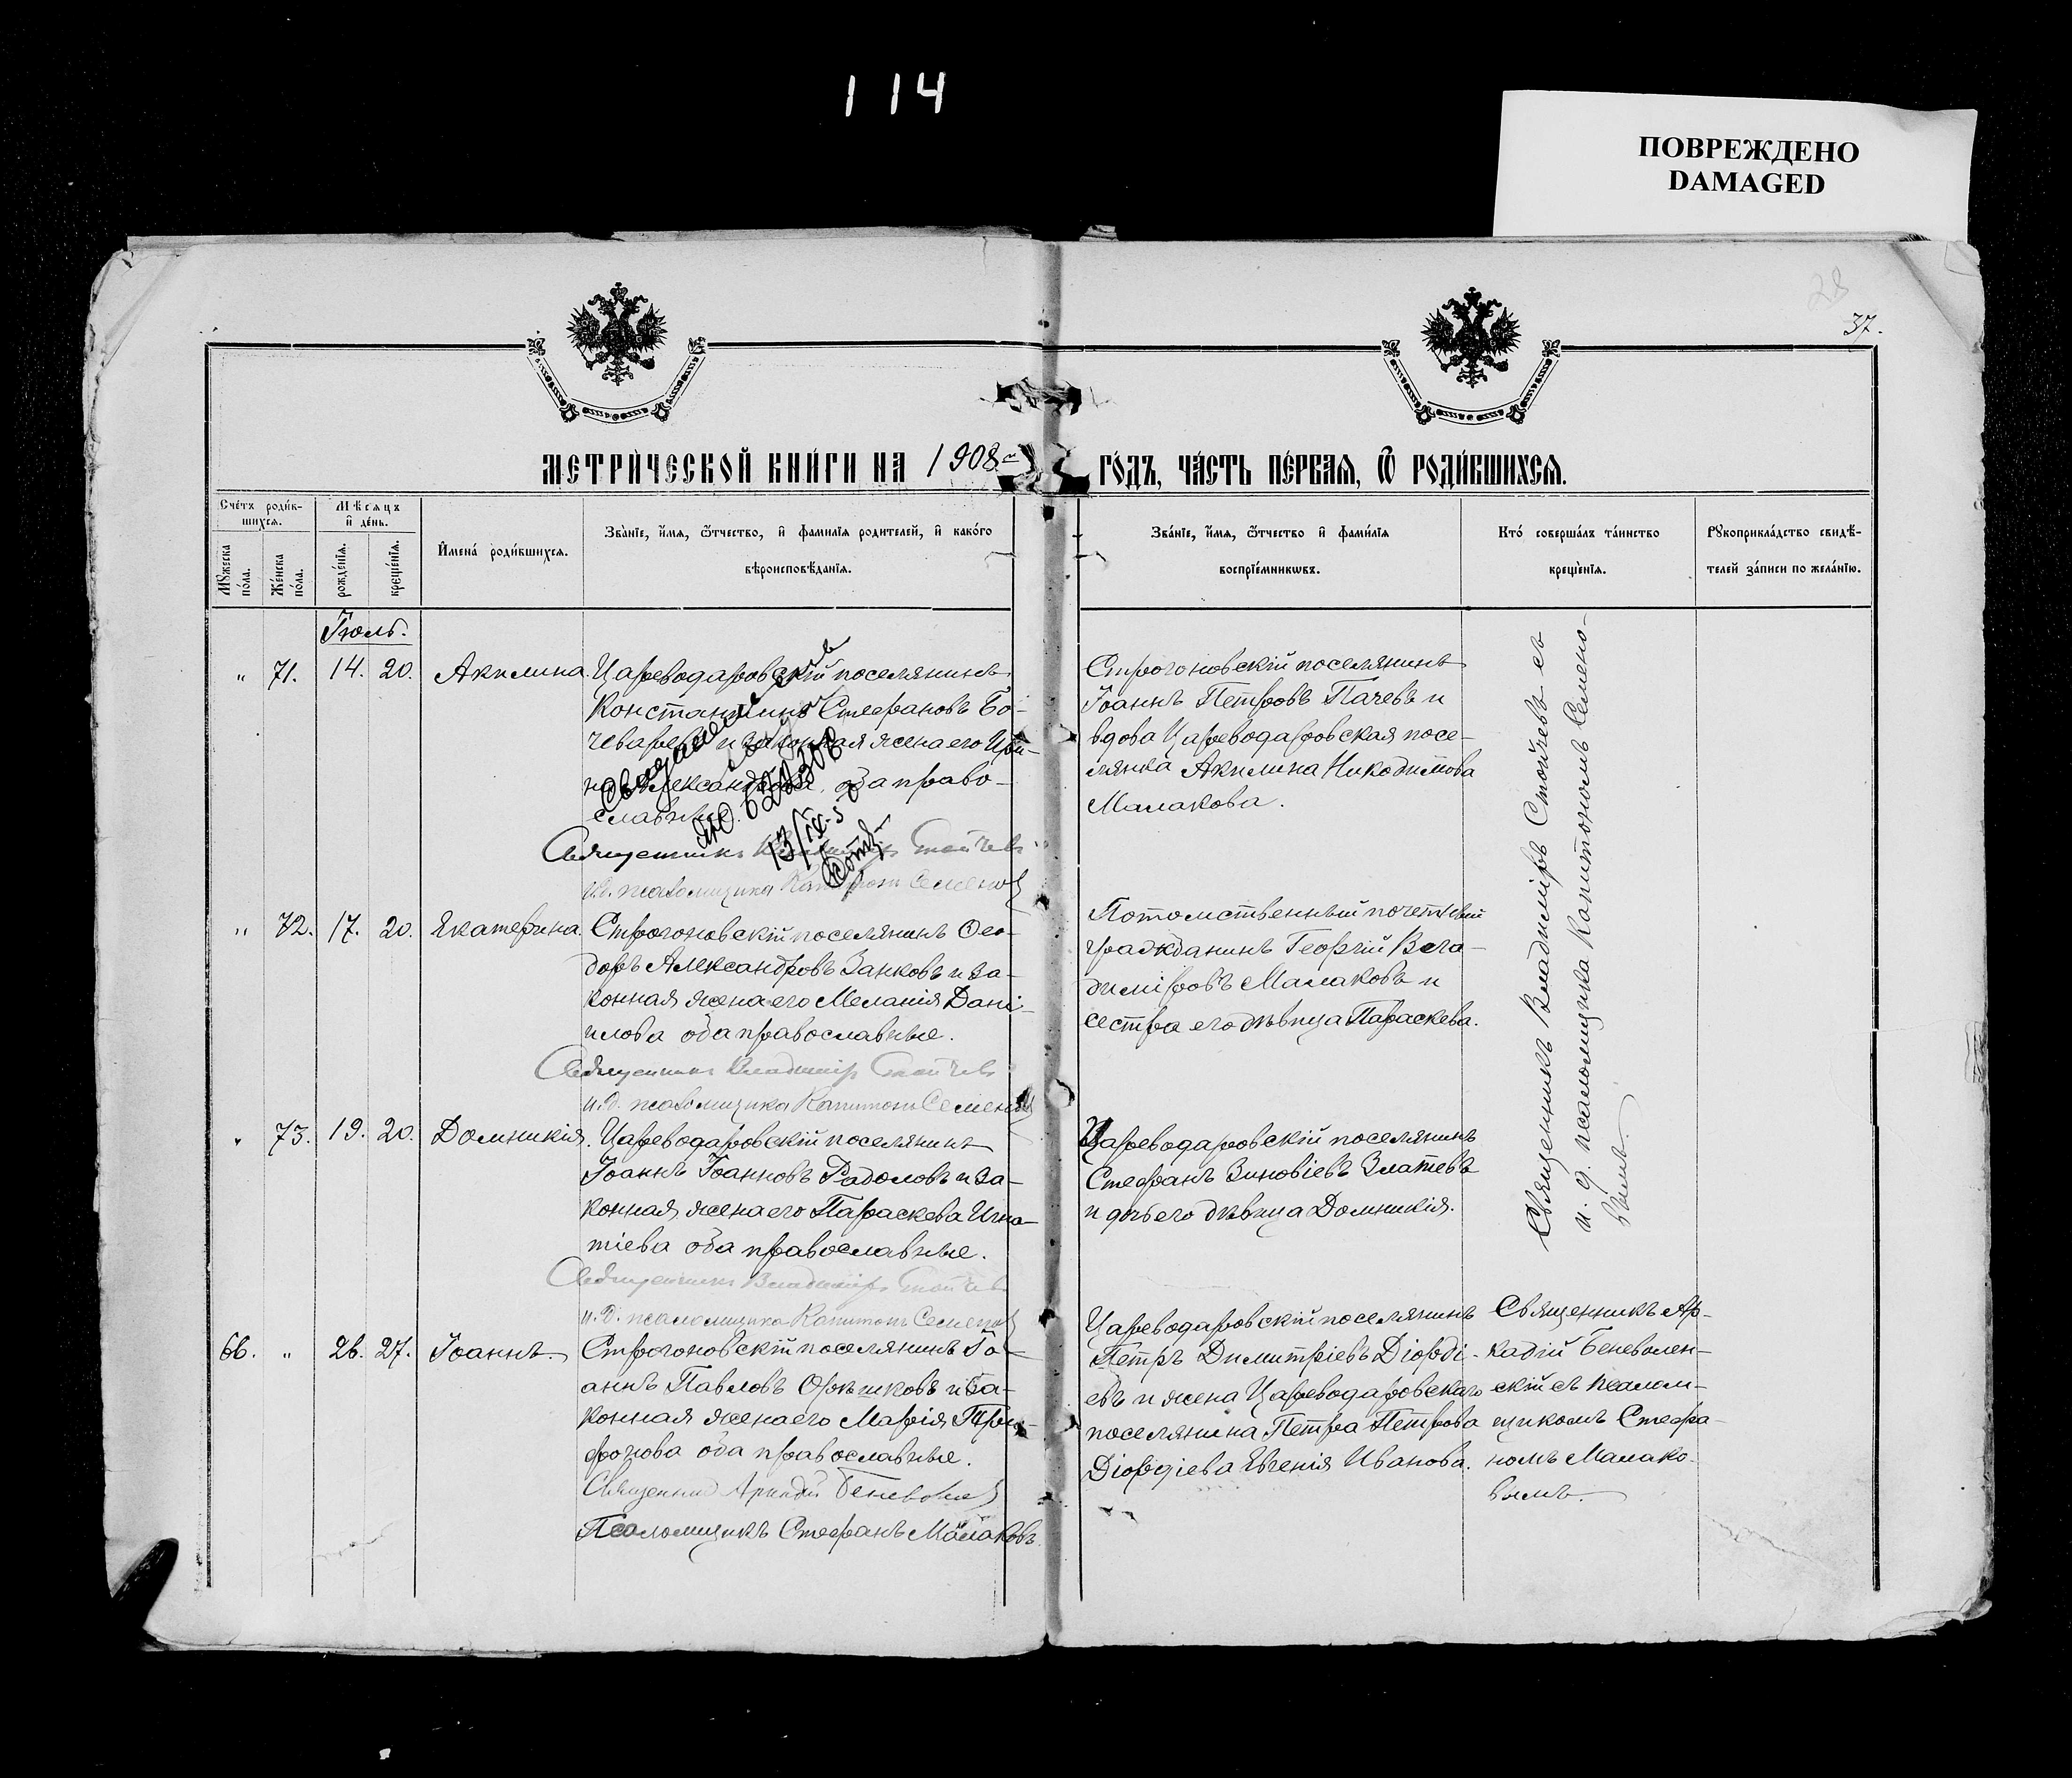 114
ПОВРЕЖДЕНО
DAMAGED
28
37.
МЕТРИ́ЧЕСКОЙ КНИ́ГИ НА 1908 г.
ГО́ДЪ, ЧА́СТЬ ПЕ́РВАѦ, Ѽ РОДИ́ВШИХСѦ.
Сче́тъ роди́в-
шихся.
Мѣ́сяцъ
и де́нь.
Мꙋ́жеска
по́ла.
Же́нска
по́ла.
рожде́нїя.
креще́нїя.
Имена́ роди́вшихся.
Зва́нїе, и́мя, ѻ҆́тчество, и фами́лїя роди́телей, и како́го
вѣроисповѣ́данїя.
Зва́нїе, и́мя, ѻ҆́тчество и фами́лїя
воспрїе́мникѡвъ.
Кто́ соверша́лъ та́инство
креще́нїя.
Рꙋкоприкла́дство свидѣ́-
телей за́писи по жела́нїю.
Іюль.
" 71. 14. 20. Акилина. Царeводаровскій поселянинъ
Константинъ Стефановъ Бо-
чеваровъ и законная жена его Ири-
на Александрова, оба право-
славные.
№ 622
13/IX
Священникъ Владиміръ Стойчевъ
и.д. псаломщика Капитонъ Семеновъ
Строгоновскій поселянинъ
Іоаннъ Петровъ Пачевъ и
вдова Царeводаровская посе-
лянка Акилина Никодимова
Малакова.
Священникъ Владиміръ Стойчевъ съ
и. д. псаломщика Капитономъ Семено-
вымъ.
" 72. 17. 20. Екатерина. Строгоновскій поселянинъ Ѳео-
доръ Александровъ Занковъ и за-
конная жена его Меланія Дані-
илова оба православные.
Священникъ Владиміръ Стойчевъ
и.д. псаломщика Капитонъ Семеновъ
Потомственный почетный
гражданинъ Георгій Вла-
диміровъ Малаковъ и
сестра его дѣвица Параскева.
" 73. 19. 20. Домникія. Царeводаровскій поселянинъ
Іоаннъ Іоанновъ Радоловъ и за-
конная жена его Параскева Игна-
тіева оба православные.
Священникъ Владиміръ Стойчевъ
и.д. псаломщика Капитонъ Семеновъ
Царeводаровскій поселянинъ
Стефанъ Зиновіевъ Златевъ
и дочь его дѣвица Домникія.
66. " 26. 27. Іоаннъ. Строгоновскій поселянинъ Іо-
аннъ Павловъ Орѣшковъ и за-
конная жена его Марія Три-
фонова оба православные.
Священникъ Аркадій Беневоленскій
Псаломщикъ Стефанъ Малаковъ.
Царeводаровскій поселянинъ
Петръ Димитріевъ Діорді-
евъ и жена Царeводаровскаго
поселянина Петра Петрова
Діордіева Евгенія Иванова.
Священникъ Ар-
кадій Беневолен-
скій съ псалом-
щикомъ Стефа-
номъ Малако-
вымъ.